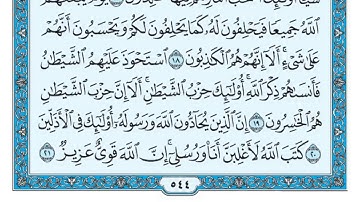 اللَّهُ جَمِيعًا فَيَحْلِفُونَ لَهُۥ كَمَا يَحْلِفُونَ لَكُمْ وَيَحْسَبُونَ أَنَّهُمْ
عَلَىٰ شَىْءٍ أَلَآ إِنَّهُمْ هُمُ ٱلْكَٰذِبُونَ ١٨ ٱسْتَحْوَذَ عَلَيْهِمُ ٱلشَّيْطَٰنُ
فَأَنسَىٰهُمْ ذِكْرَ ٱللَّهِ أُو۟لَٰٓئِكَ حِزْبُ ٱلشَّيْطَٰنِ أَلَآ إِنَّ حِزْبَ ٱلشَّيْطَٰنِ
هُمُ ٱلْخَٰسِرُونَ ١٩ إِنَّ ٱلَّذِينَ يُحَآدُّونَ ٱللَّهَ وَرَسُولَهُۥٓ أُو۟لَٰٓئِكَ فِى ٱلْأَذَلِّينَ
٢٠ كَتَبَ ٱللَّهُ لَأَغْلِبَنَّ أَنَا۠ وَرُسُلِىٓ إِنَّ ٱللَّهَ قَوِىٌّ عَزِيزٌ ٢١
٥٤٤